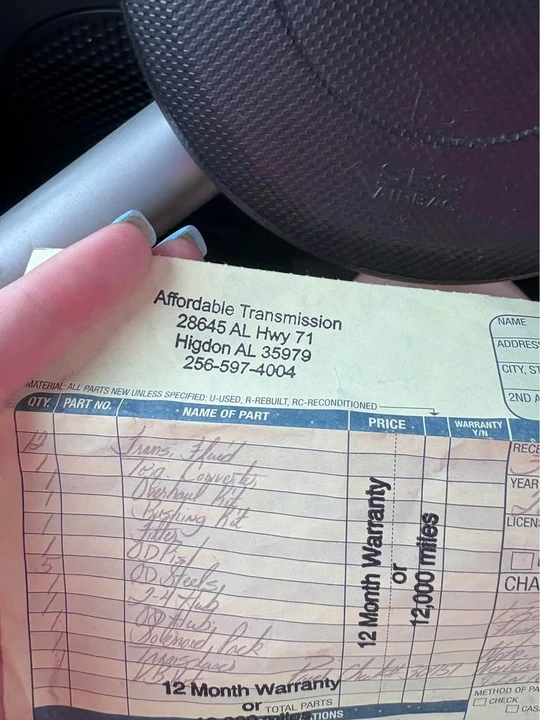 SRS
AIRBAG
Affordable Transmission
28645 AL Hwy 71
Higdon AL 35979
256-597-4004
NAME
ADDRES
CITY, ST
2ND A
MATERIAL: ALL PARTS NEW UNLESS SPECIFIED: U-USED, R-REBUILT, RC-RECONDITIONED
QTY. PART NO. NAME OF PART PRICE WARRANTY Y/N
12 Trans. Fluid
1 Converter
1 Overhaul Kit
1 Bushing Kit
1 Filter
1 OD
5 OD Steels
1 2-4 Hub
1 OD Hub
1 Solenoid Pack
12 Month Warranty
or
12,000 miles
RECE
YEAR
LICEN
CHA
12 Month Warranty
or
TOTAL PARTS
METHOD OF PA
CHECK
CAS